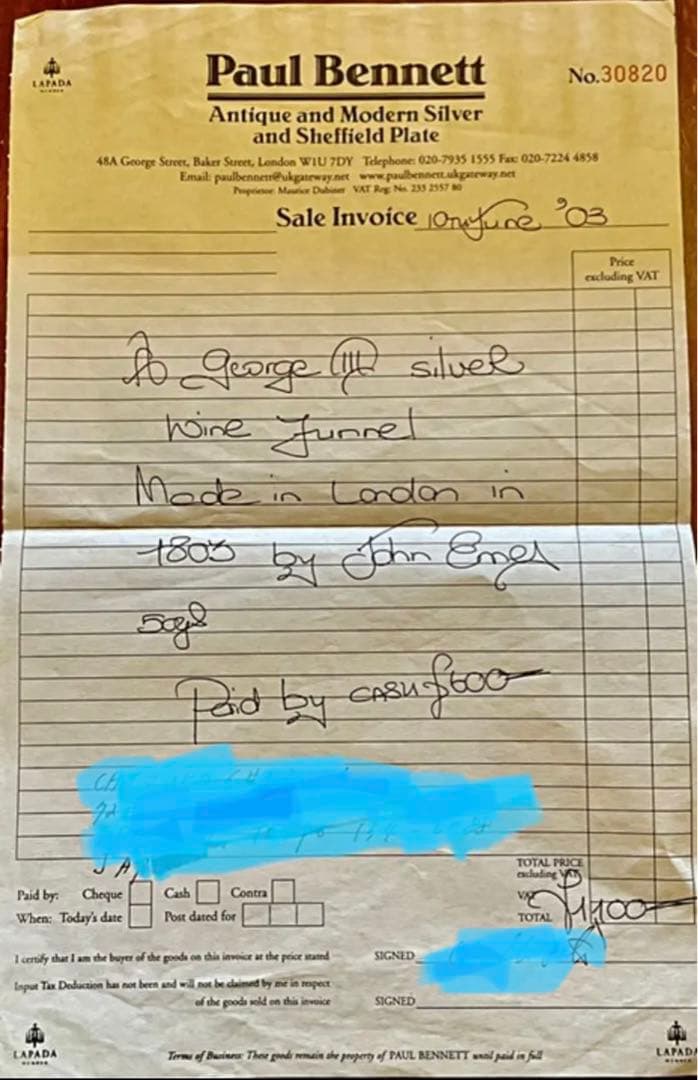 LAPADA
MEMBER
Paul Bennett
No.30820
Antique and Modern Silver
and Sheffield Plate
48A George Street, Baker Street, London W1U 7DY Telephone: 020-7935 1555 Fax: 020-7224 4858
Email: paulbennett@ukgateway.net www.paulbennett.ukgateway.net
Proprietor: Maurice Dubiner VAT Reg: No. 233 2557 80
Sale Invoice 10 June '03
Price
excluding VAT
A George III silver
Wine Funnel
Made in London in
1803 by John Emes
Paid by CASH £600
TOTAL PRICE
excluding VAT
Paid by: Cheque Cash Contra
VAT
When: Today's date Post dated for
TOTAL £1,100
I certify that I am the buyer of the goods on this invoice at the price stated
SIGNED
Input Tax Deduction has not been and will not be claimed by me in respect
of the goods sold on this invoice
SIGNED
LAPADA
MEMBER
Terms of Business: These goods remain the property of PAUL BENNETT until paid in full
LAPADA
MEMBER